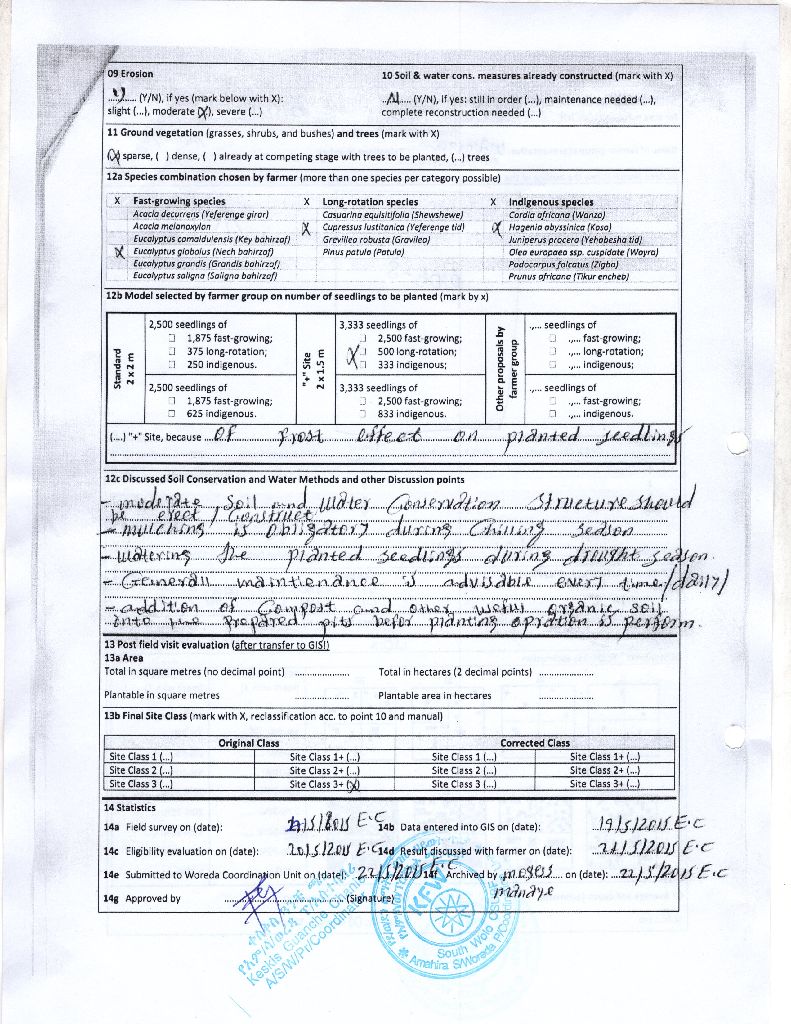 09 Erosion
10 Soil & water cons. measures already constructed (mark with X)
..y.... (Y/N), if yes (mark below with X):
..N.... (Y/N), If yes: still in order (...), maintenance needed (...),
slight (...), moderate (X), severe (...)
complete reconstruction needed (...)
11 Ground vegetation (grasses, shrubs, and bushes) and trees (mark with X)
(X) sparse, ( ) dense, ( ) already at competing stage with trees to be planted, (...) trees
12a Species combination chosen by farmer (more than one species per category possible)
X Fast-growing species X Long-rotation species X Indigenous species
Acacia decurrens (Yeferenge girar) Casuarina equisitifolia (Shewshewe) Cordia africana (Wanza)
Acacia melanoxylon X Cupressus lustitanica (Yeferenge tid) X Hagenia abyssinica (Koso)
Eucalyptus camaldulensis (Key bahirzaf) Grevillea robusta (Gravilea) Juniperus procera (Yehabesha tid)
X Eucalyptus globolus (Nech bahirzaf) Pinus patula (Patula) Olea europaea ssp. cuspidate (Wayra)
Eucalyptus grandis (Grandis bahirzaf) Podocarpus falcatus (Zigba)
Eucalyptus saligna (Saligna bahirzaf) Prunus africana (Tikur encheb)
12b Model selected by farmer group on number of seedlings to be planted (mark by x)
Standard
2 x 2 m
2,500 seedlings of
1,875 fast-growing;
375 long-rotation;
250 indigenous.
2,500 seedlings of
1,875 fast-growing;
625 indigenous.
"+" Site
2 x 1.5 m
3,333 seedlings of
2,500 fast-growing;
X 500 long-rotation;
333 indigenous;
3,333 seedlings of
2,500 fast-growing;
833 indigenous.
Other proposals by
farmer group
.,... seedlings of
.,... fast-growing;
.,... long-rotation;
.,... indigenous;
.,... seedlings of
.,... fast-growing;
.,... indigenous.
(...) "+" Site, because Of frost effect on planted seedlings
12c Discussed Soil Conservation and Water Methods and other Discussion points
- moderate Soil and Water Conservation Structure should
be erect / Construct
- mulching is obligatory during Chilling season
- Watering the planted seedlings during drought season
- Generall maintienance is advisable every time/daily/
- addition of Compost and other useful organic soil
into the prepared pits befor planting opration is perform.
13 Post field visit evaluation (after transfer to GIS!)
13a Area
Total in square metres (no decimal point) .................... Total in hectares (2 decimal points) ....................
Plantable in square metres .................... Plantable area in hectares ....................
13b Final Site Class (mark with X, reclassification acc. to point 10 and manual)
Original Class Corrected Class
Site Class 1 (...) Site Class 1+ (...) Site Class 1 (...) Site Class 1+ (...)
Site Class 2 (...) Site Class 2+ (...) Site Class 2 (...) Site Class 2+ (...)
Site Class 3 (...) Site Class 3+ (X) Site Class 3 (...) Site Class 3+ (...)
14 Statistics
14a Field survey on (date): /5/2015 E.C 14b Data entered into GIS on (date): 19/5/2015 E.C
14c Eligibility evaluation on (date): 20/5/2015 E.C 14d Result discussed with farmer on (date): 21/5/2015 E.C
14e Submitted to Woreda Coordination Unit on (date): 22/5/2015 E.C 14f Archived by mogess manaye on (date): 22/5/2015 E.C
14g Approved by .................... (Signature)
Keskis Guanche
A/S/W/Pr/Coordinator
KFW
South Wolo
Amahira S/Woreda P/Coo